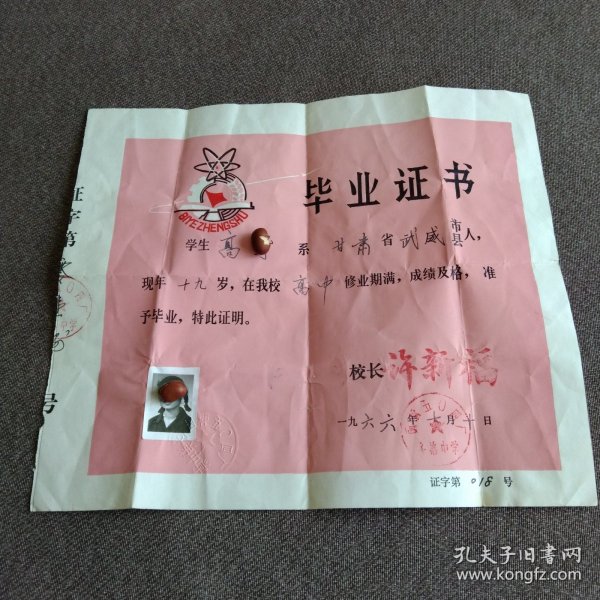 毕业证书
BIYEZHENGSHU
学生 高 系 甘肃省武威市县人，
现年十九岁，在我校高中修业期满，成绩及格，准
予毕业，特此证明。
校长 许新福
一九六六年十月十日
证字第018号
证字第
号
孔夫子旧书网
www.kongfz.com